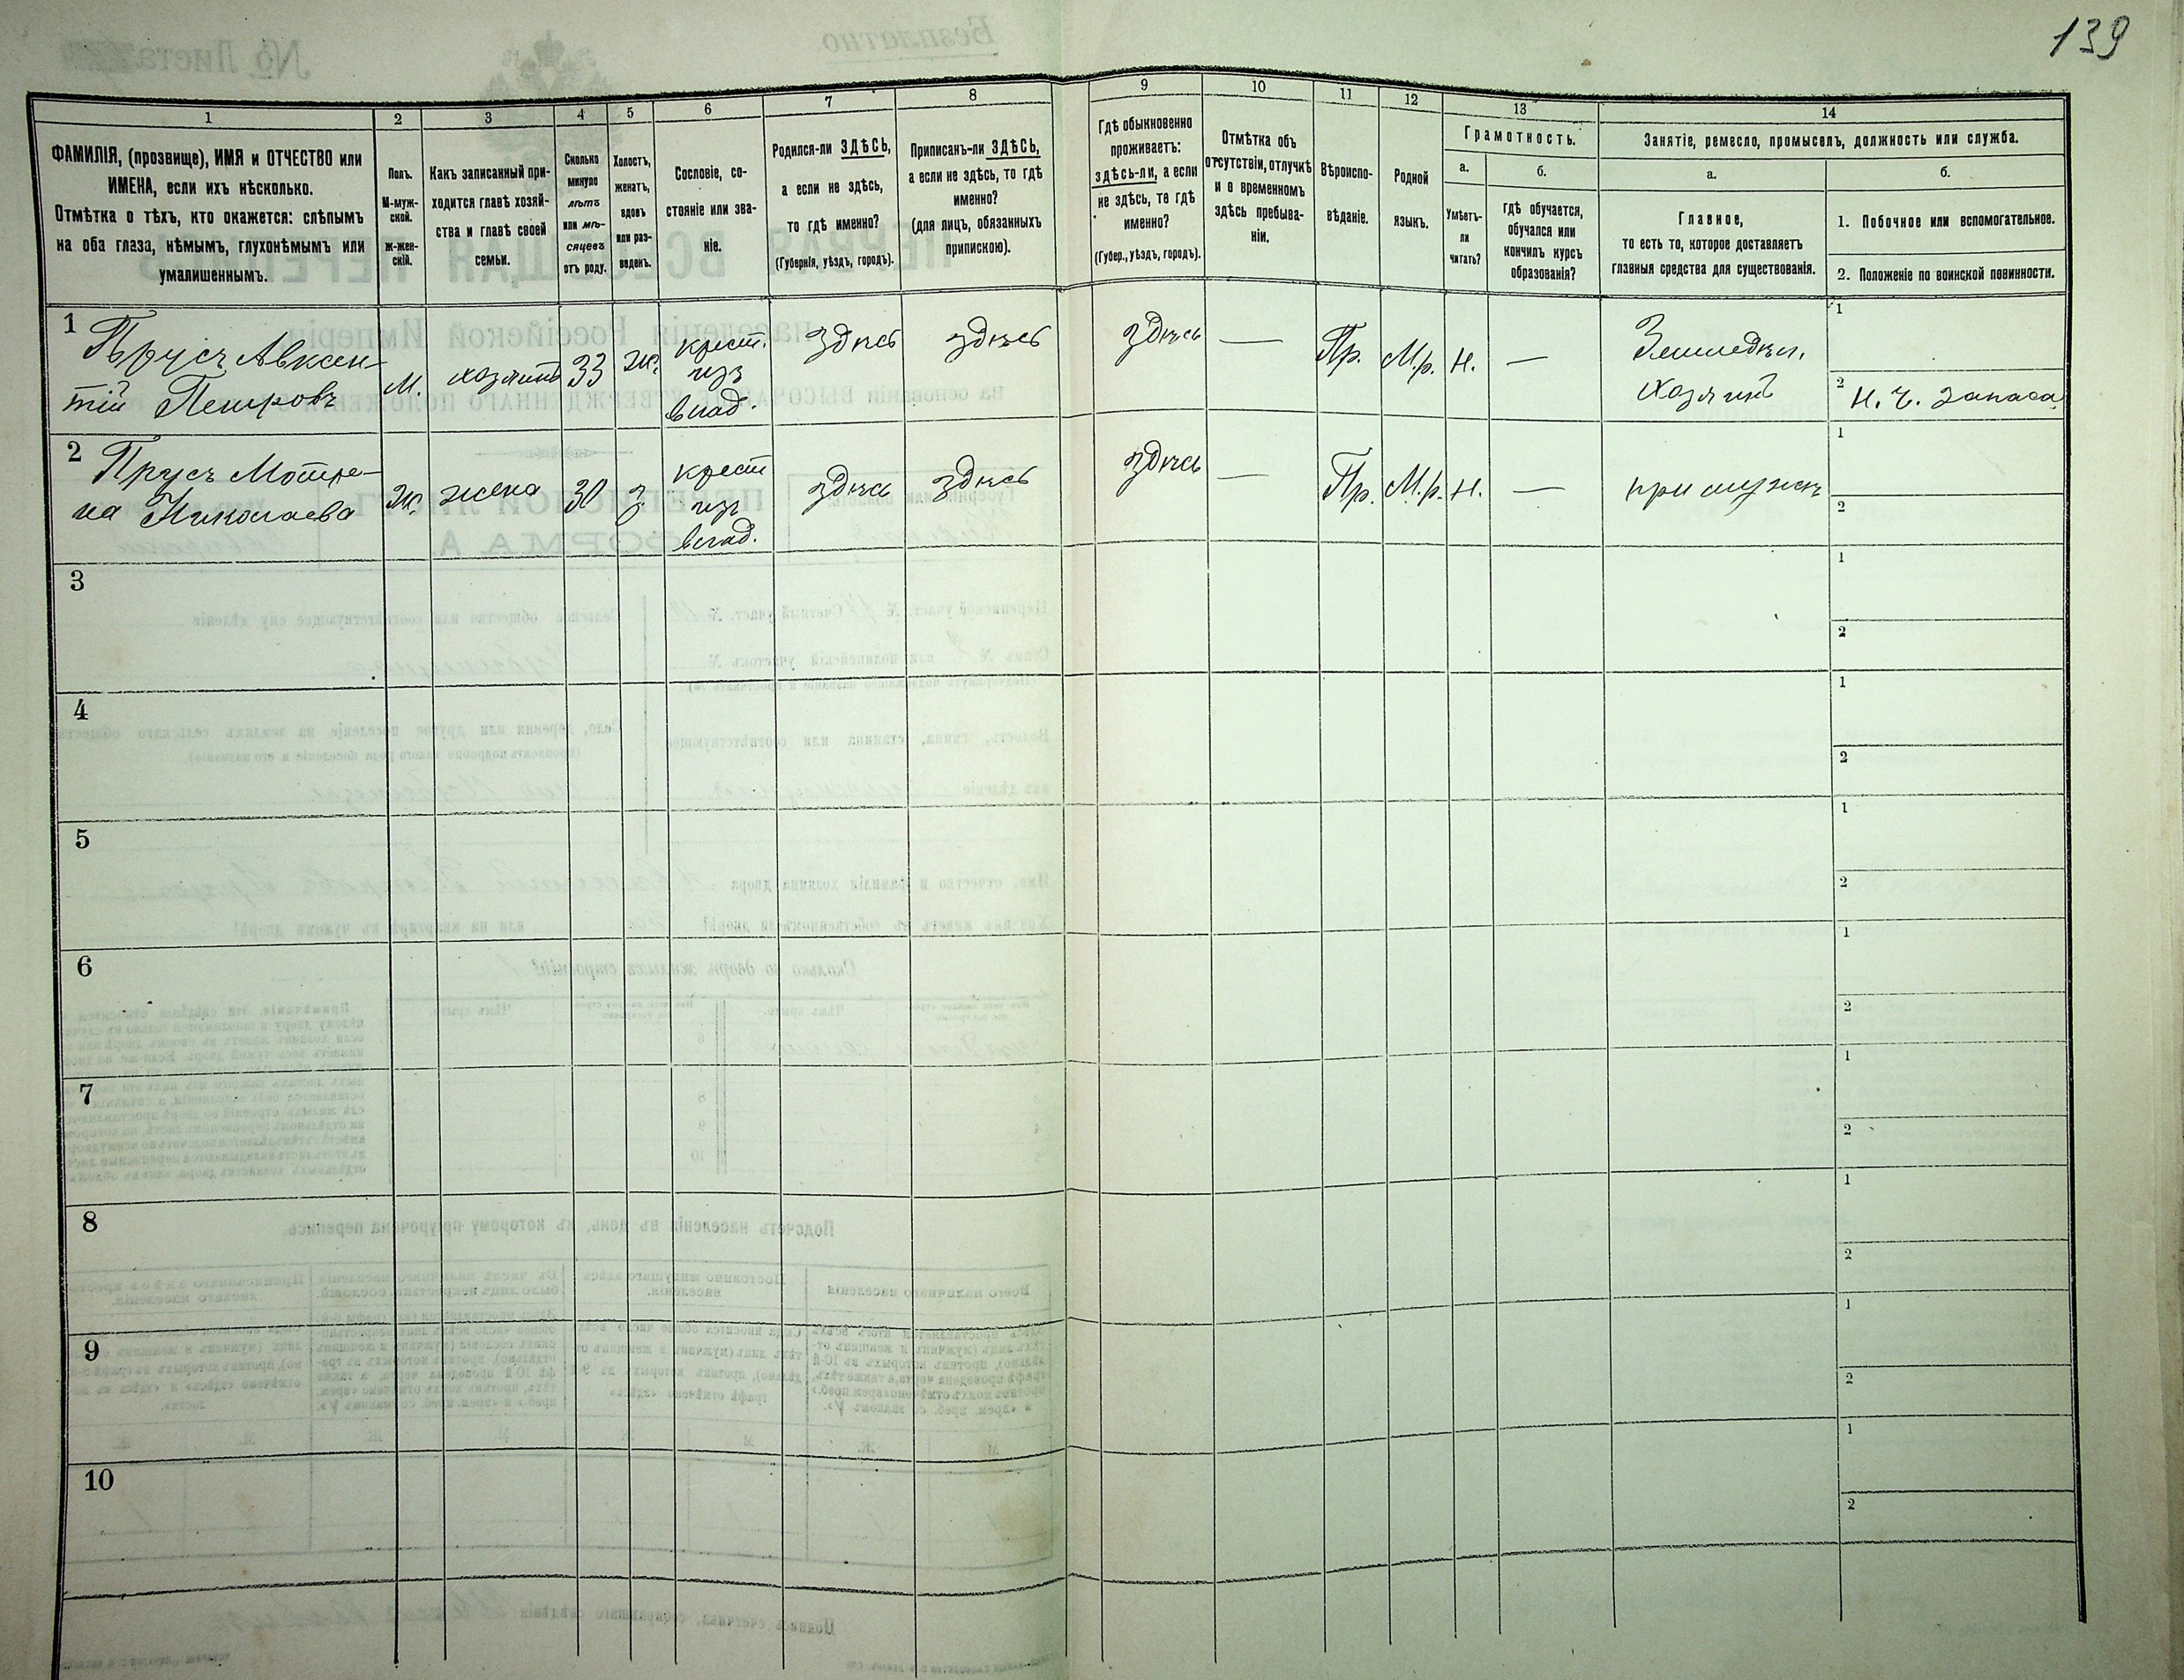 139
1
2
3
4
5
6
7
8
9
10
11
12
13
14
ФАМИЛІЯ, (прозвище), ИМЯ и ОТЧЕСТВО или
ИМЕНА, если ихъ нѣсколько.
Отмѣтка о тѣхъ, кто окажется: слѣпымъ
на оба глаза, нѣмымъ, глухонѣмымъ или
умалишеннымъ.
Полъ.
М-муж-
ской.
ж-жен-
скій.
Какъ записанный при-
ходится главѣ хозяй-
ства и главѣ своей
семьи.
Сколько
минуло
лѣтъ
или мѣ-
сяцевъ
отъ роду.
Холостъ,
женатъ,
вдовъ
или раз-
веденъ.
Сословіе, со-
стояніе или зва-
ніе.
Родился-ли ЗДѢСЬ,
а если не здѣсь,
то гдѣ именно?
(Губернія, уѣздъ, городъ).
Приписанъ-ли ЗДѢСЬ,
а если не здѣсь, то гдѣ
именно?
(для лицъ, обязанныхъ
припискою).
Гдѣ обыкновенно
проживаетъ:
здѣсь-ли, а если
не здѣсь, то гдѣ
именно?
(Губер., уѣздъ, городъ).
Отмѣтка объ
отсутствіи, отлучкѣ
и о временномъ
здѣсь пребыва-
ніи.
Вѣроиспо-
вѣданіе.
Родной
языкъ.
Грамотность.
а.
Умѣетъ-
ли
читать?
б.
гдѣ обучается,
обучался или
кончилъ курсъ
образованія?
Занятіе, ремесло, промыселъ, должность или служба.
а.
Главное,
то есть то, которое доставляетъ
главныя средства для существованія.
б.
1. Побочное или вспомогательное.
2. Положеніе по воинской повинности.
1
Прусъ Авксен-
тій Петровъ
М.
хозяинъ
33
ж.
крест.
изъ
влад.
здѣсь
здѣсь
здѣсь
—
Пр.
М.р.
Н.
—
Земледѣл.
хозяинъ
1
2 Н. Ч. Запаса
2
Прусъ Мотре-
на Николаева
ж.
жена
30
з.
крест
изъ
влад.
здѣсь
здѣсь
здѣсь
—
Пр.
М.р.
Н.
—
при мужѣ
1
2
3
1
2
4
1
2
5
1
2
6
1
2
7
1
2
8
1
2
9
1
2
10
1
2